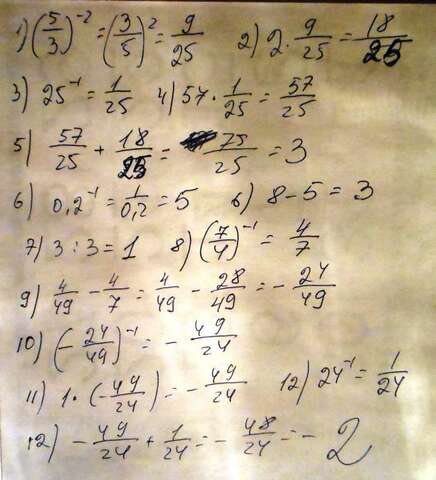 1) (5/3)^-2 = (3/5)^2 = 9/25 2) 2 · 9/25 = 18/25
3) 25^-1 = 1/25 4) 57 · 1/25 = 57/25
5) 57/25 + 18/25 = 75/25 = 3
6) 0,2^-1 = 1/0,2 = 5 6) 8 - 5 = 3
7) 3 : 3 = 1 8) (7/4)^-1 = 4/7
9) 4/49 - 4/7 = 4/49 - 28/49 = - 24/49
10) (- 24/49)^-1 = - 49/24
11) 1 · (- 49/24) = - 49/24 12) 24^-1 = 1/24
12) - 49/24 + 1/24 = - 48/24 = - 2